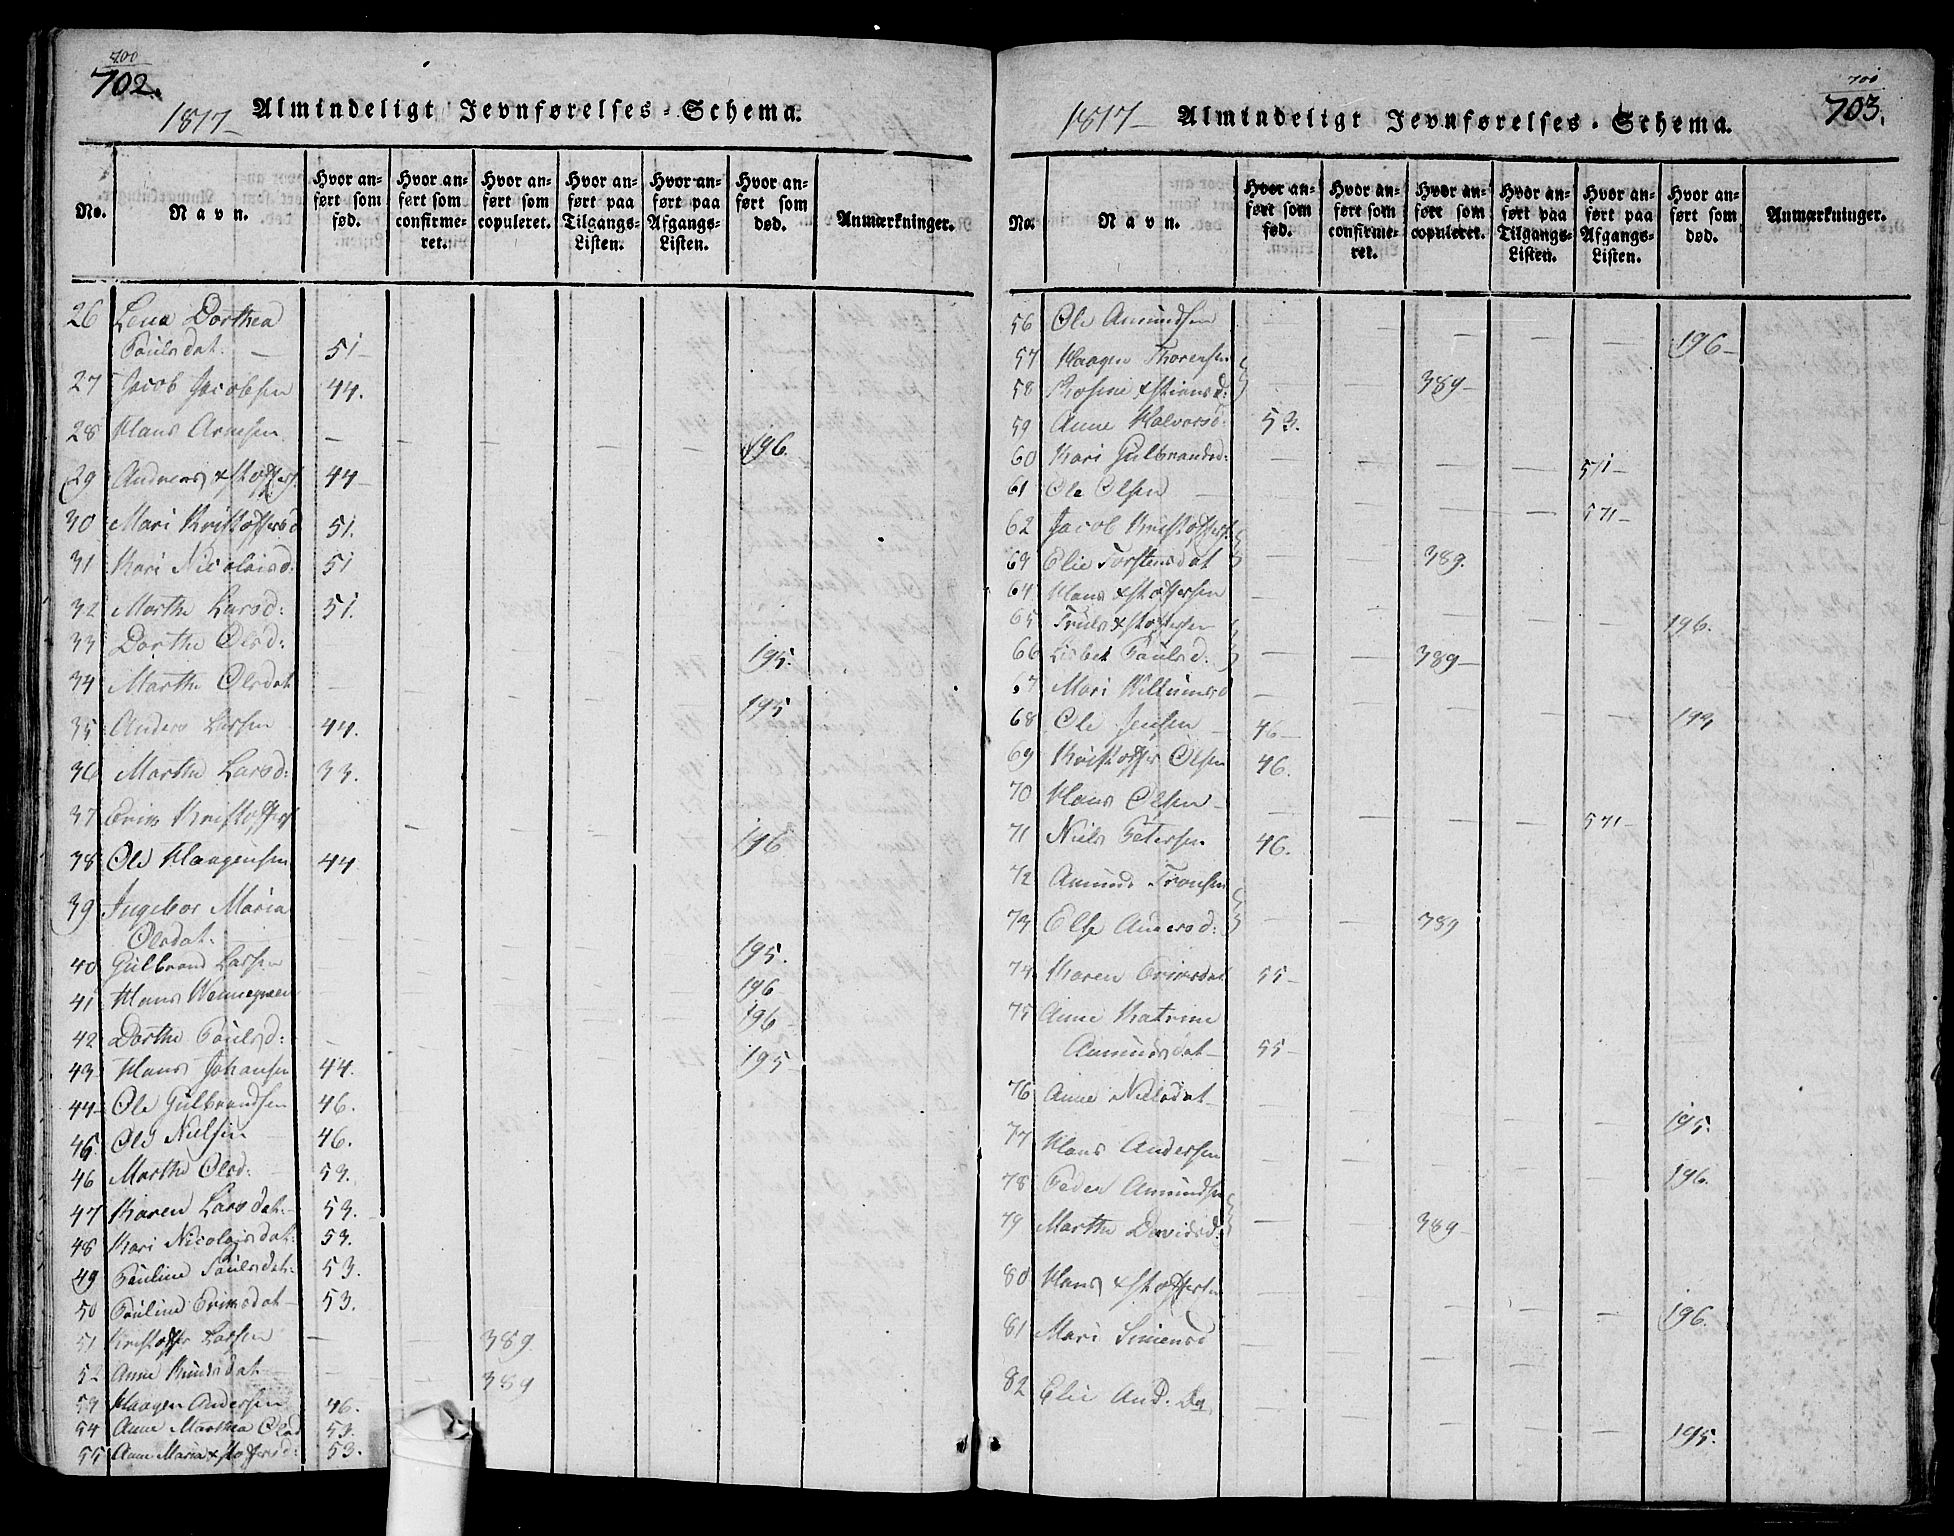 700
702.
1817 Almindeligt Jevnførelses-Schema.
No. Navn. Hvor anført som fød. Hvor anført som confirmeret. Hvor anført som copuleret. Hvor anført paa Tilgangs-Listen. Hvor anført paa Afgangs-Listen. Hvor anført som død. Anmærkninger.
26 Lena Dorthea
Poulsdat. — 51 —
27 Jacob Jacobsen 44.
28 Hans Arnesen — — — — — 196.
29 Andreas xstoffers. 44 —
30 Mari Kristoffersd 51.
31 Kari Nicolaisd. 51
32 Marthe Larsd: 51.
33 Dorthe Olsd: 195.
34 Marthe Olsdat 195
35 Anders Larsen 44.
36 Marthe Larsd: 33.
37 Erik Kristoffers 196
38 Ole Haagensen 44
39 Ingebor Maria
Olsdat. 195.
40 Gulbrand Larsen 196
41 Hans 196 —
42 Dorthe Poulsd: 195 —
43 Hans Johansen 44.
44 Ole Gulbrandsen 46.
45 Ole Nielsen 46.
46 Marthe Olsd: 53.
47 Karen Larsdat. 53.
48 Kari Nicolaisdat. 53.
49 Pauline Poulsdat. 53.
50 Pauline Eriksdat — 53.
51 Kristoffer Larsen — 389.
52 Anne Knudsdat — 389
53 Haagen Andersen 46.
54 Anne Marthea Olsd 53.
55 Anne Maria xstoffersd: 53.
700
703.
1817 — Almindeligt Jevnførelses-Schema.
No. Navn. Hvor anført som fød. Hvor anført som confirmeret. Hvor anført som copuleret. Hvor anført paa Tilgangs-Listen. Hvor anført paa Afgangs-Listen. Hvor anført som død. Anmærkninger.
56 Ole Amundsen — — — — — 196 —
57 Haagen Thorensen
58 Rosine xstiansd: — — 389 —
59 Anne Halvorsd: 53.
60 Kari Gulbrandsd: — — — — 571 —
61 Ole Olsen — — — — 571 —
62 Jacob Kristoffers.
63 Elie Torstensdat — — 389.
64 Hans xstoffersen 196.
65 Truls xstoffersen
66 Lisbet Poulsd: — — 389 —
67 Mari Willumsd — 193
68 Ole Jensen 46 —
69 Kristoffer Olsen 46.
70 Hans Olsen — — — — 571 —
71 Niels Petersen 46.
72 Amund Tronsen
73 Else Andersd: — — 389
74 Karen Eriksdat 55 —
75 Anne Katrine
Amundsdat — 55 —
76 Anne Nielsdat — 195.
77 Hans Andersen 196.
78 Peder Amundsen
79 Marthe Davidsd. — — 389
80 Hans xstoffersen 196.
81 Mari Simensd
82 Elie And. Da. 195.